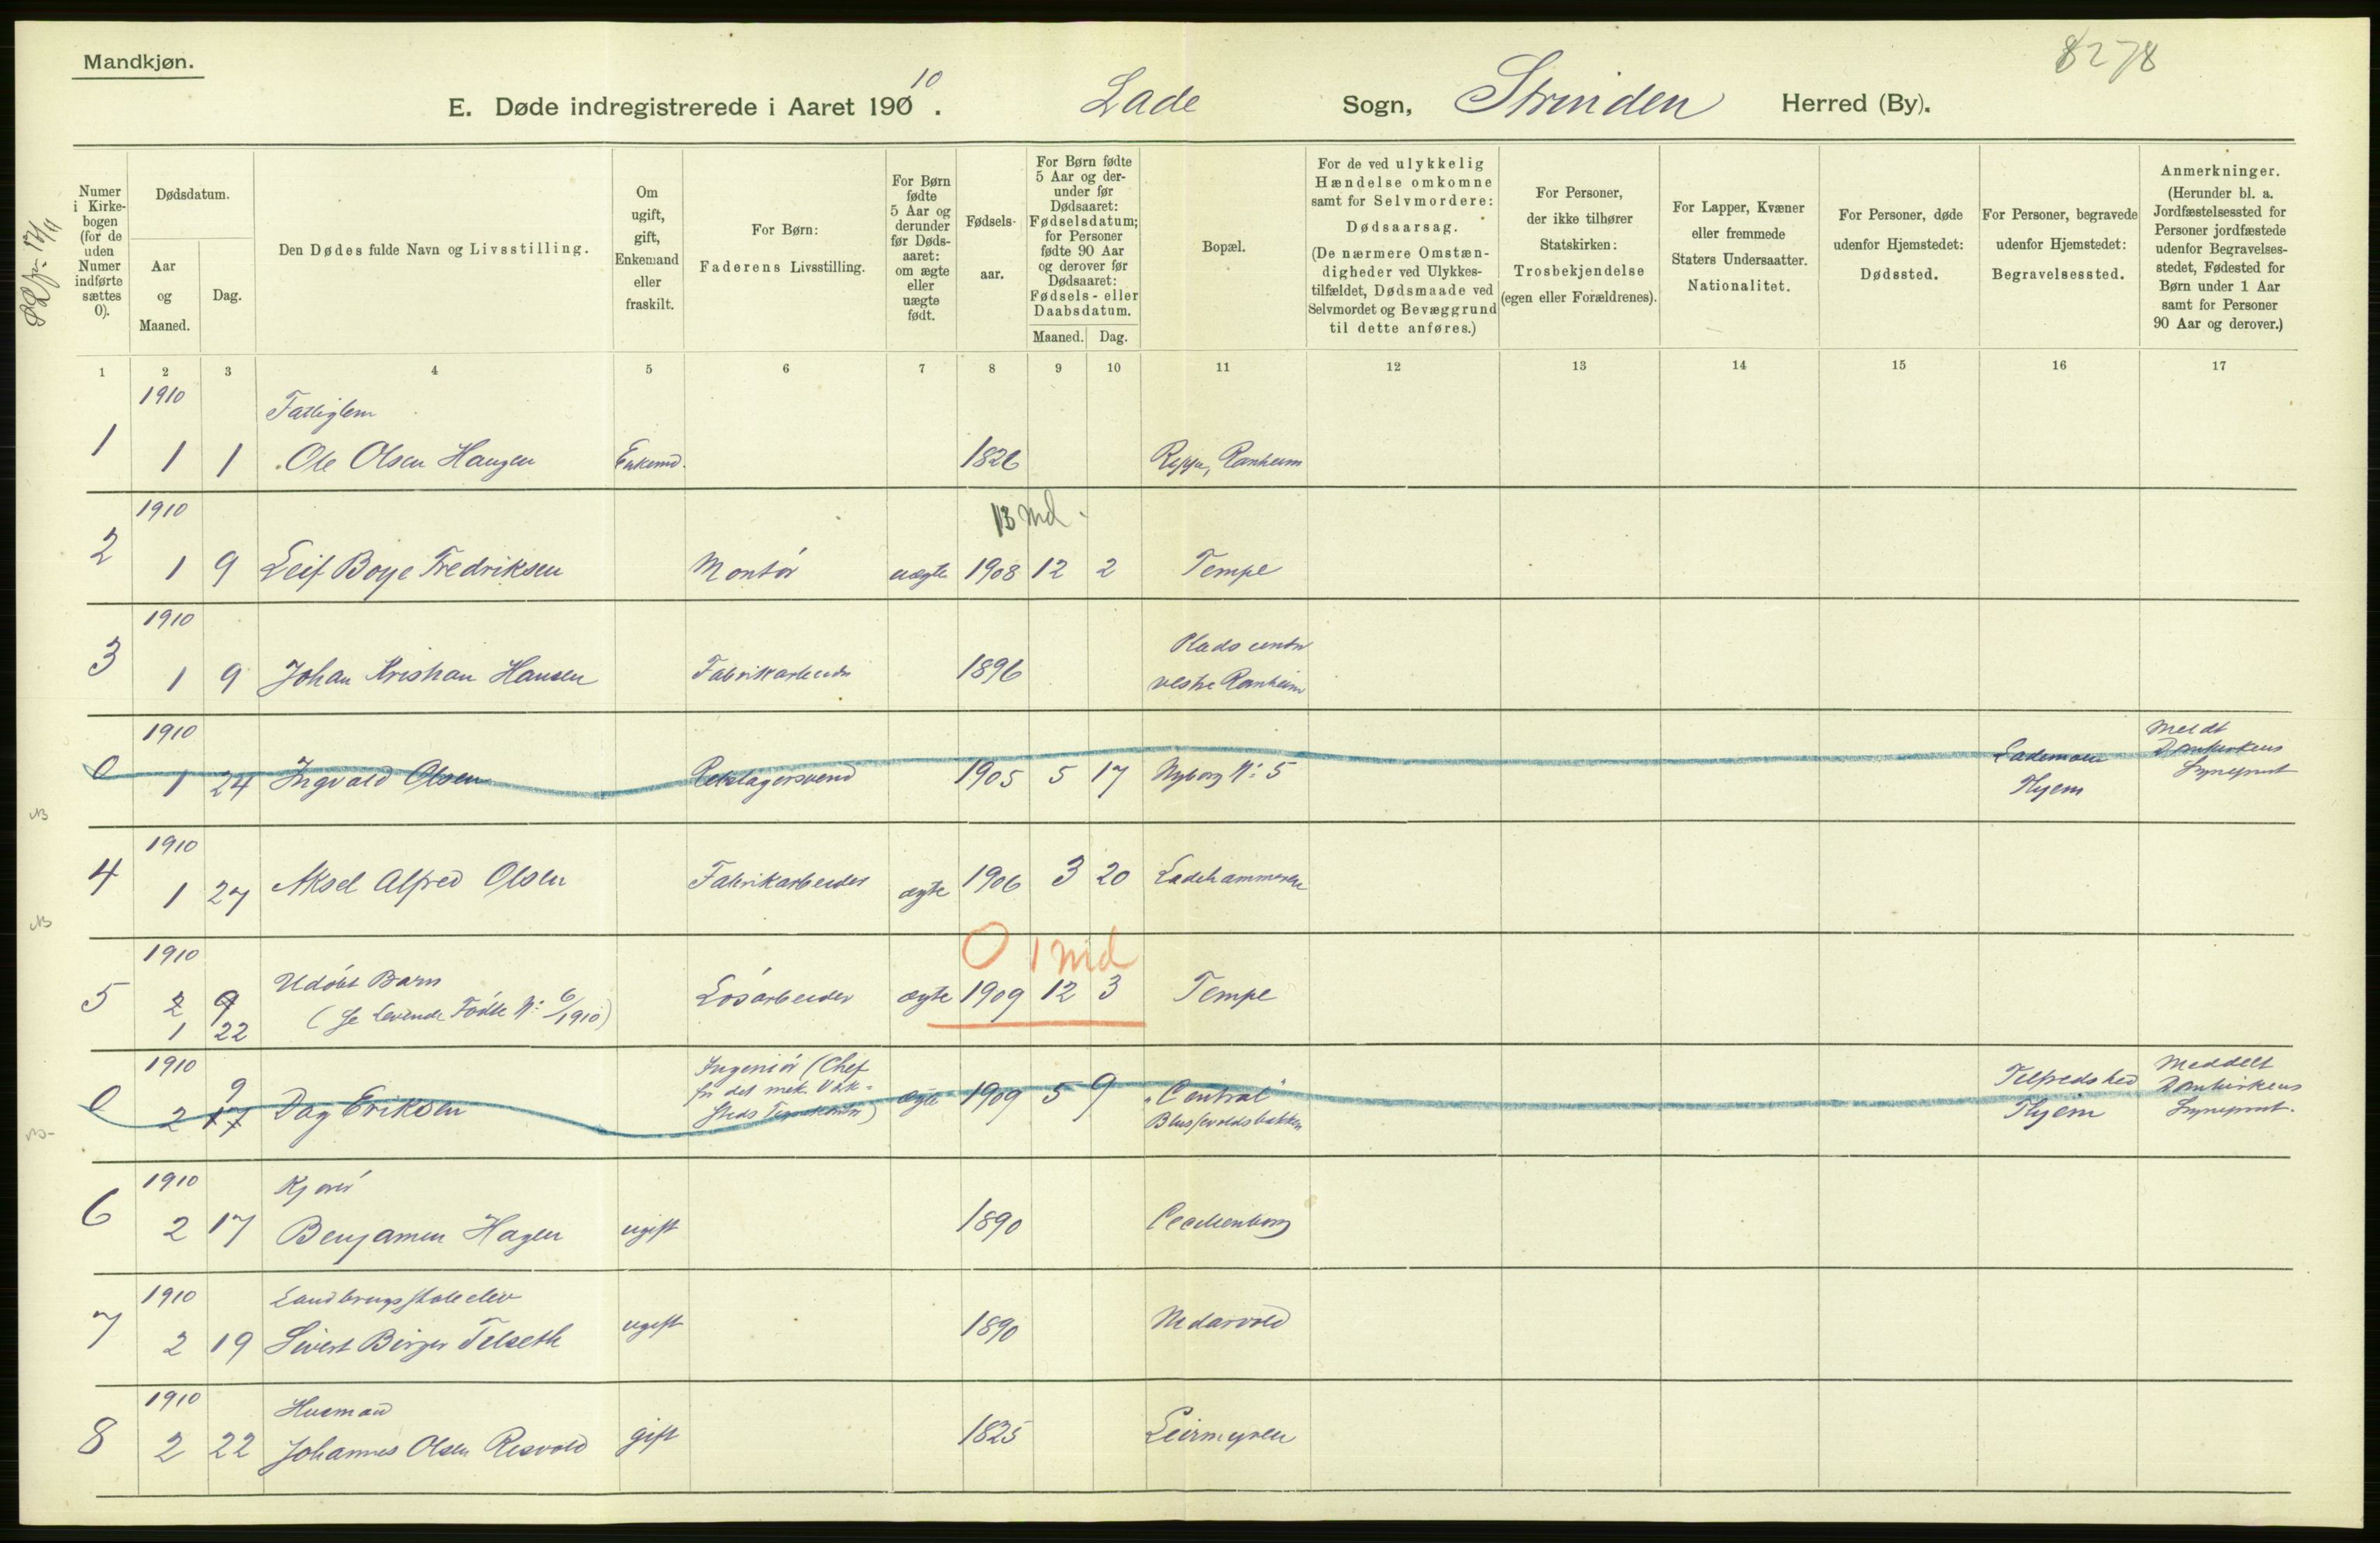 Mandkjøn.
8278
E. Døde indregistrerede i Aaret 1910. Lade Sogn, Strinden Herred (By).
Numer i Kirkebogen (for de uden Numer indførte sættes 0).
Dødsdatum.
Aar og Maaned.
Dag.
Den Dødes fulde Navn og Livsstilling.
Om ugift, gift, Enkemand eller fraskilt.
For Børn: Faderens Livsstilling.
For Børn fødte 5 Aar og derunder før Dødsaaret: om ægte eller uægte født.
Fødselsaar.
For Børn fødte 5 Aar og derunder før Dødsaaret: Fødselsdatum; for Personer fødte 90 Aar og derover før Dødsaaret: Fødsels- eller Daabsdatum.
Maaned. Dag.
Bopæl.
For de ved ulykkelig Hændelse omkomne samt for Selvmordere: Dødsaarsag. (De nærmere Omstændigheder ved Ulykkestilfældet, Dødsmaade ved Selvmordet og Bevæggrund til dette anføres.)
For Personer, der ikke tilhører Statskirken: Trosbekjendelse (egen eller Forældrenes).
For Lapper, Kvæner eller fremmede Staters Undersaatter. Nationalitet.
For Personer, døde udenfor Hjemstedet: Dødssted.
For Personer, begravede udenfor Hjemstedet: Begravelsessted.
Anmerkninger. (Herunder bl. a. Jordfæstelsessted for Personer jordfæstede udenfor Begravelsesstedet, Fødested for Børn under 1 Aar samt for Personer 90 Aar og derover.)
1 2 3 4 5 6 7 8 9 10 11 12 13 14 15 16 17
1910 Fattiglem
1 1 1 Ole Olsen Haugen Enkemd. 1826 Reppe, Ranheim
1910 13 Md.
2 1 9 Leif Boye Fredriksen Montör uægte 1908 12 2 Tempe
1910 Plads under
3 1 9 Johan Kristian Hansen Fabrikarbeider 1896 vestre Ranheim
1910 Meldt
0 1 24 Ingvald Olsen 1905 5 17 Nyborg N: 5 Lademoen Domkirkens
Thjem Sogneprest
1910
4 1 27 Aksel Alfred Olsen Fabrikarbeider ægte 1906 3 20 Ladehammeren
1910 0 1 Md
5 2 9 Udöbt Barn Lösarbeider ægte 1909 12 3 Tempe
1 22 (se Levende Födte N: 6/1910)
1910 Ingeniör (Chef Meddelt
9 for det mek. Værk- Tilfredshed Domkirkens
0 2 17 Dag Eriksen ægte 1909 5 9 "Central" Thjem Sogneprest.
1910
6 2 17 Benjamin Hagen ugift 1890 Cecilienborg
1910 Landbrugsskoleelev
7 2 19 Sivert Birger Telseth ugift 1890 Nedarvold
1910 Husmand
8 2 22 Johannes Olsen Risvold gift 1825 Leirmyren